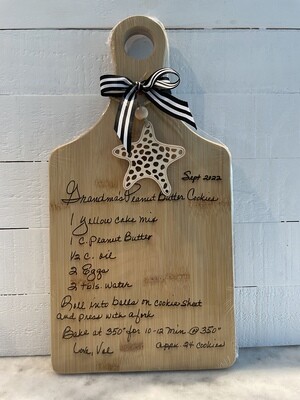 Sept 2022
Grandma's Peanut Butter Cookies
1 Yellow cake mix
1 C. Peanut Butter
1/2 c. oil
2 Eggs
2 tbls. water
Roll into balls on cookie sheet
and press with a fork
Bake at 350° for 10-12 Min @ 350°
Love, Val appx. 24 cookies